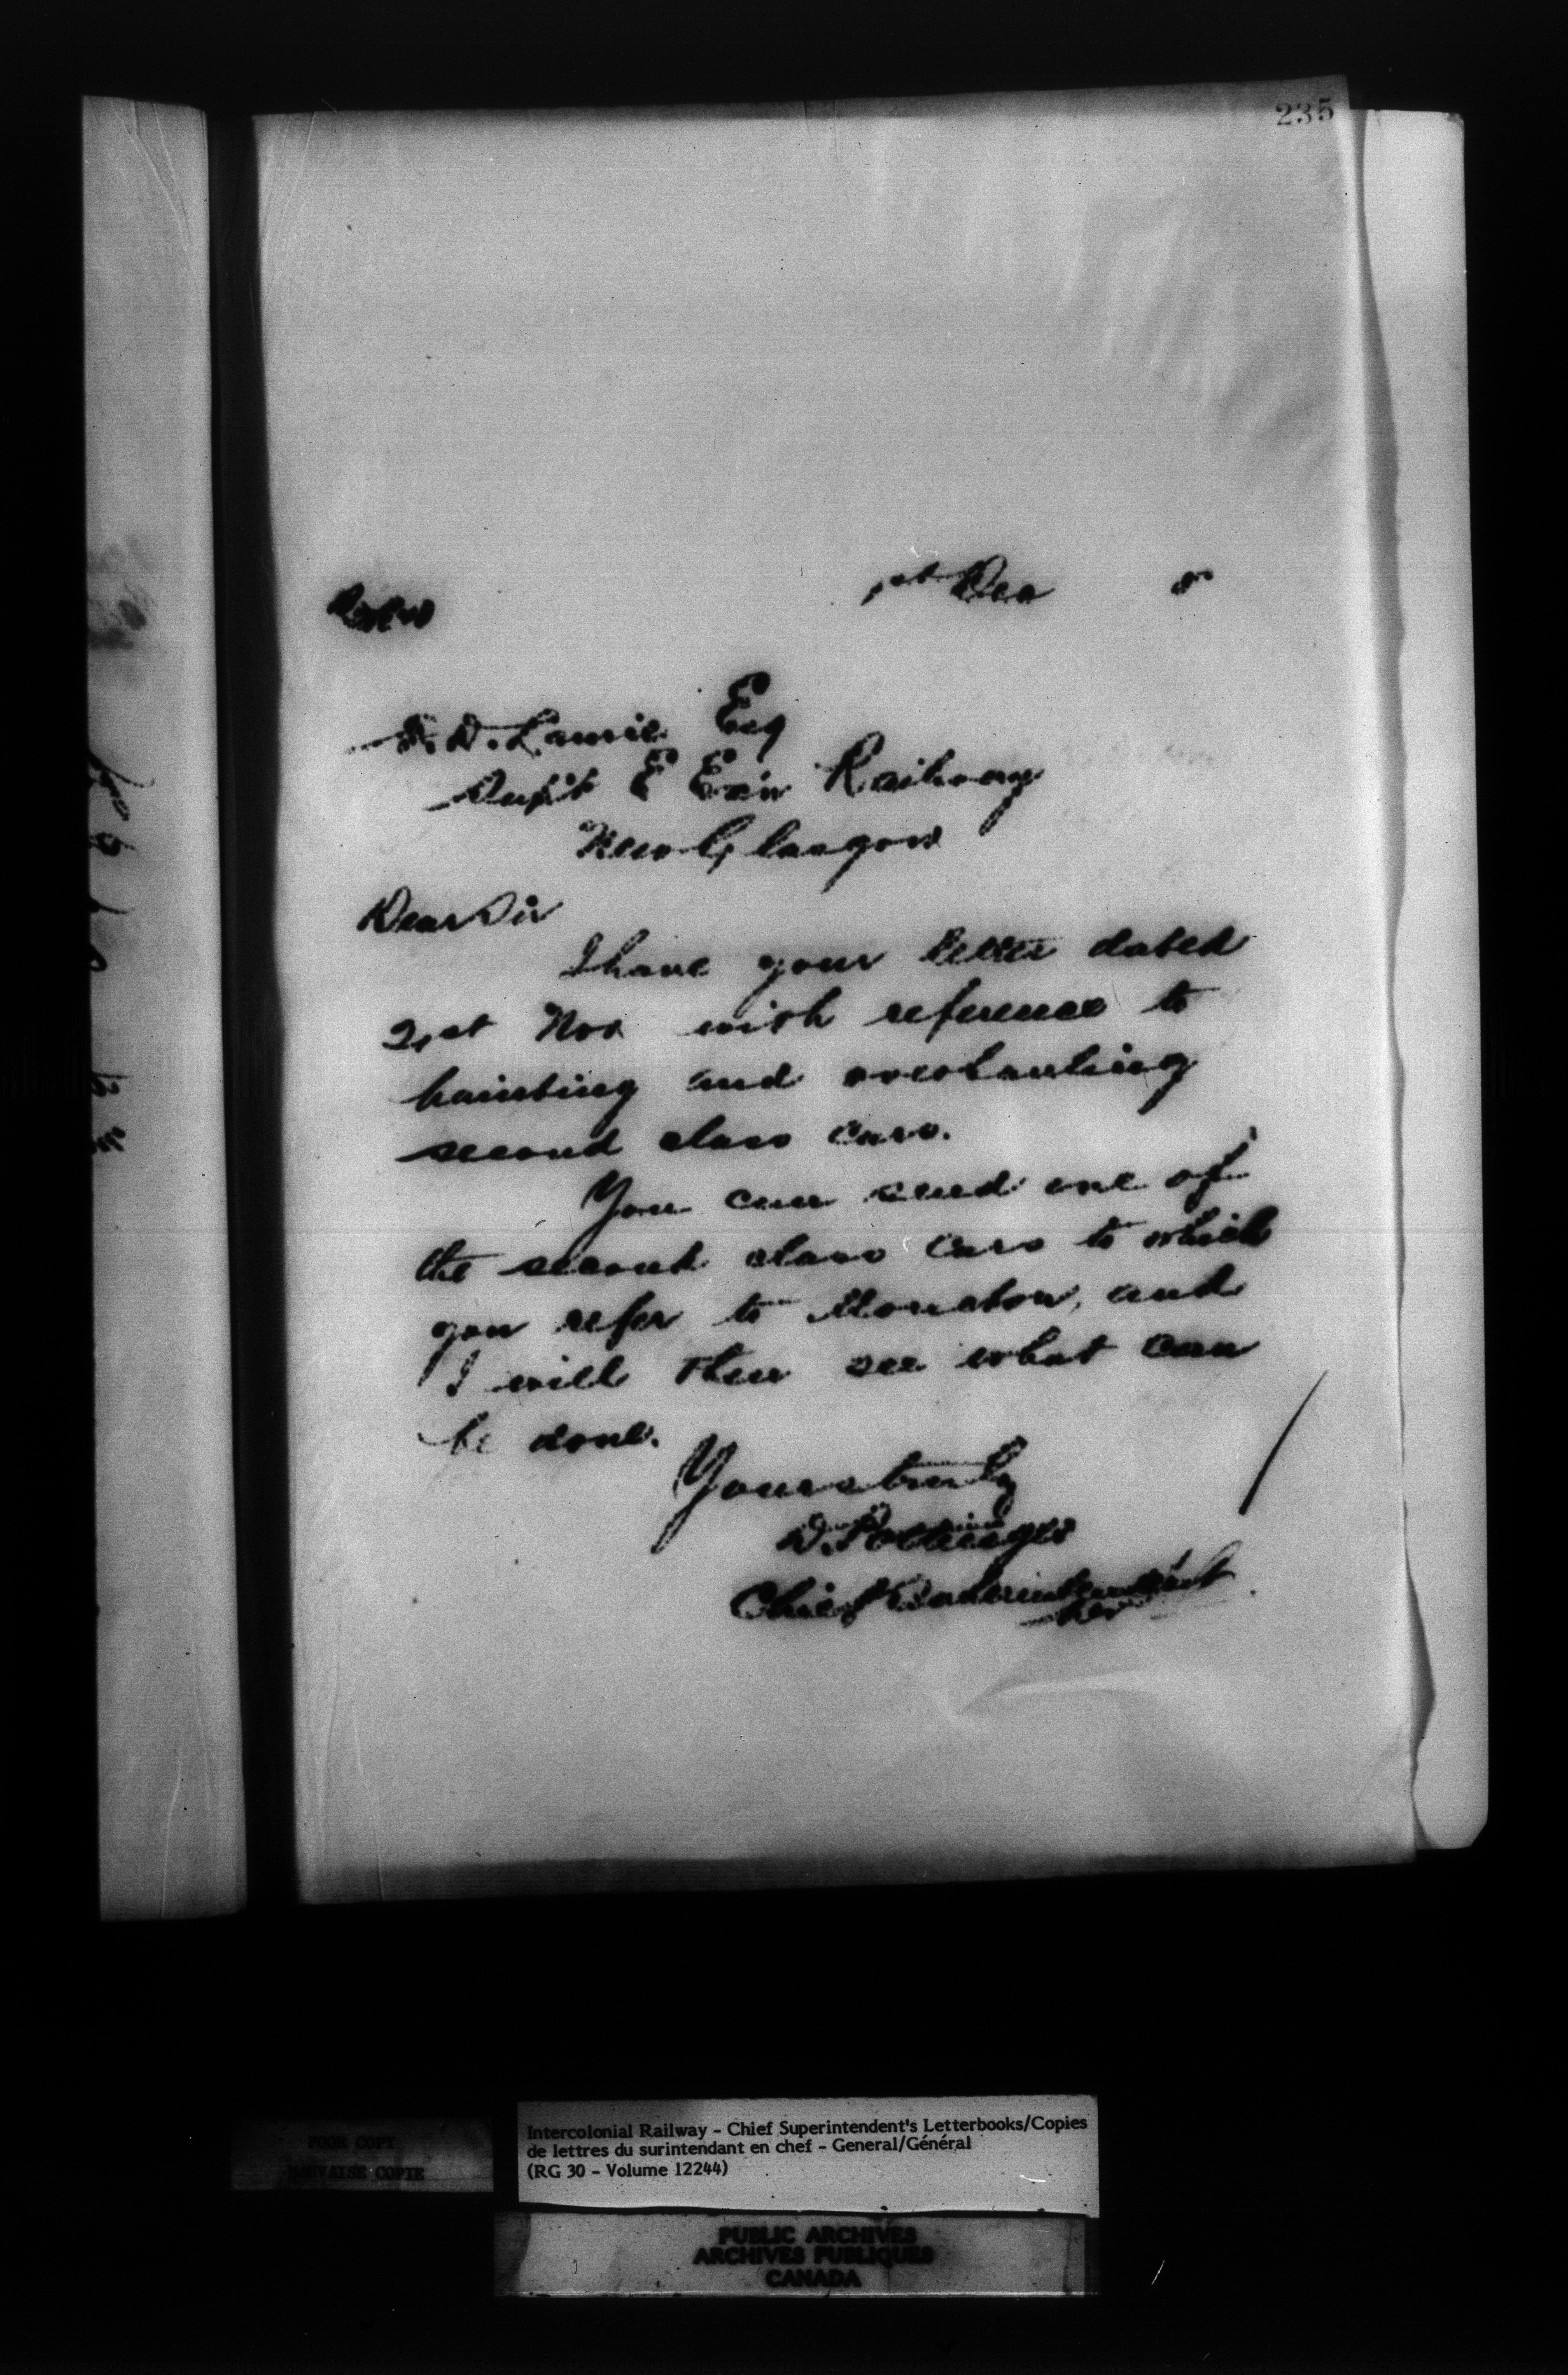 235
1st Dec 5
D. Laurie Esq
Supt E Ex'n Railway
New Glasgow
Dear Sir
I have your letter dated
21st Nov with reference to
painting and overhauling
second class cars.
You can send one of
the second class cars to which
you refer to Moncton, and
I will then see what can
be done.
Yours truly
D. Pottinger
Chief Superintendent
POOR COPY
MAUVAISE COPIE
Intercolonial Railway - Chief Superintendent's Letterbooks/Copies
de lettres du surintendant en chef - General/Général
(RG 30 - Volume 12244)
PUBLIC ARCHIVES
ARCHIVES PUBLIQUES
CANADA